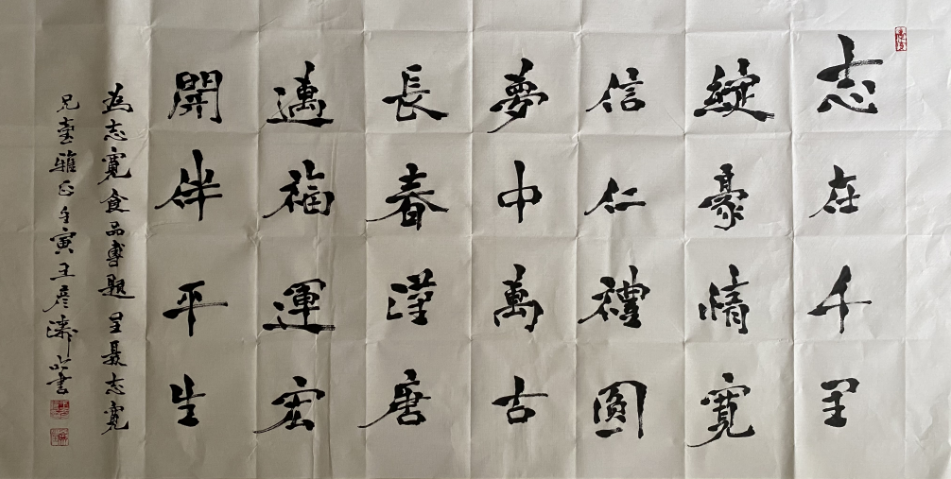 志在千里
綻豪情寬
信仁禮圓
夢中萬古
長春漢唐
邁福運宏
開伴平生
為志寬食品專題呈聂志寬
兄臺雅正壬寅王彦書